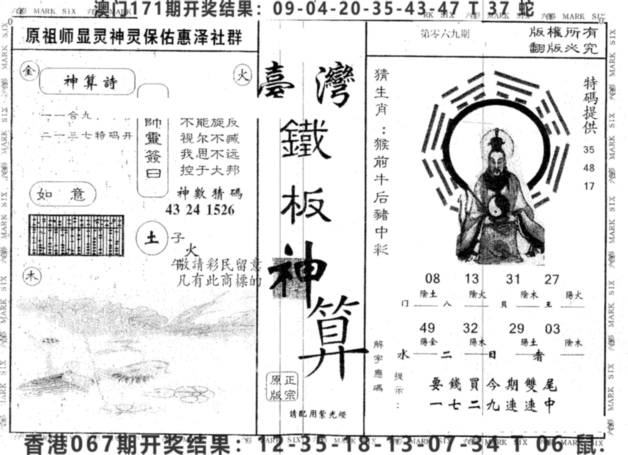 澳门171期开奖结果：09-04-20-35-43-47 T 37 蛇
原祖师显灵神灵保佑惠泽社群
第零六九期
版權所有
翻版必究
金
神算詩
火
一一合九
二一三七特码开
帥靈簽曰
不能旋反
視尔不臧
我思不远
控于大邦
神數猜碼
43 24 1526
如意
土
子
火
午
敬請彩民留意
凡有此商標的
木
臺灣
鐵板神算
正宗
原版
請配用紫光燈
猜生肖：猴前牛后豬中彩
特碼提供
35
48
17
08 13 31 27
陰土 陰火 陰木 陽火
門 八 貝 王
49 32 29 03
陽金 陽木 陽土 陰木
水 二 日 者
解字應碼
提示：
要錢買今期雙尾
一二七九連連中
香港067期开奖结果：12-35-18-13-07-34 T 06 鼠.
MARK SIX